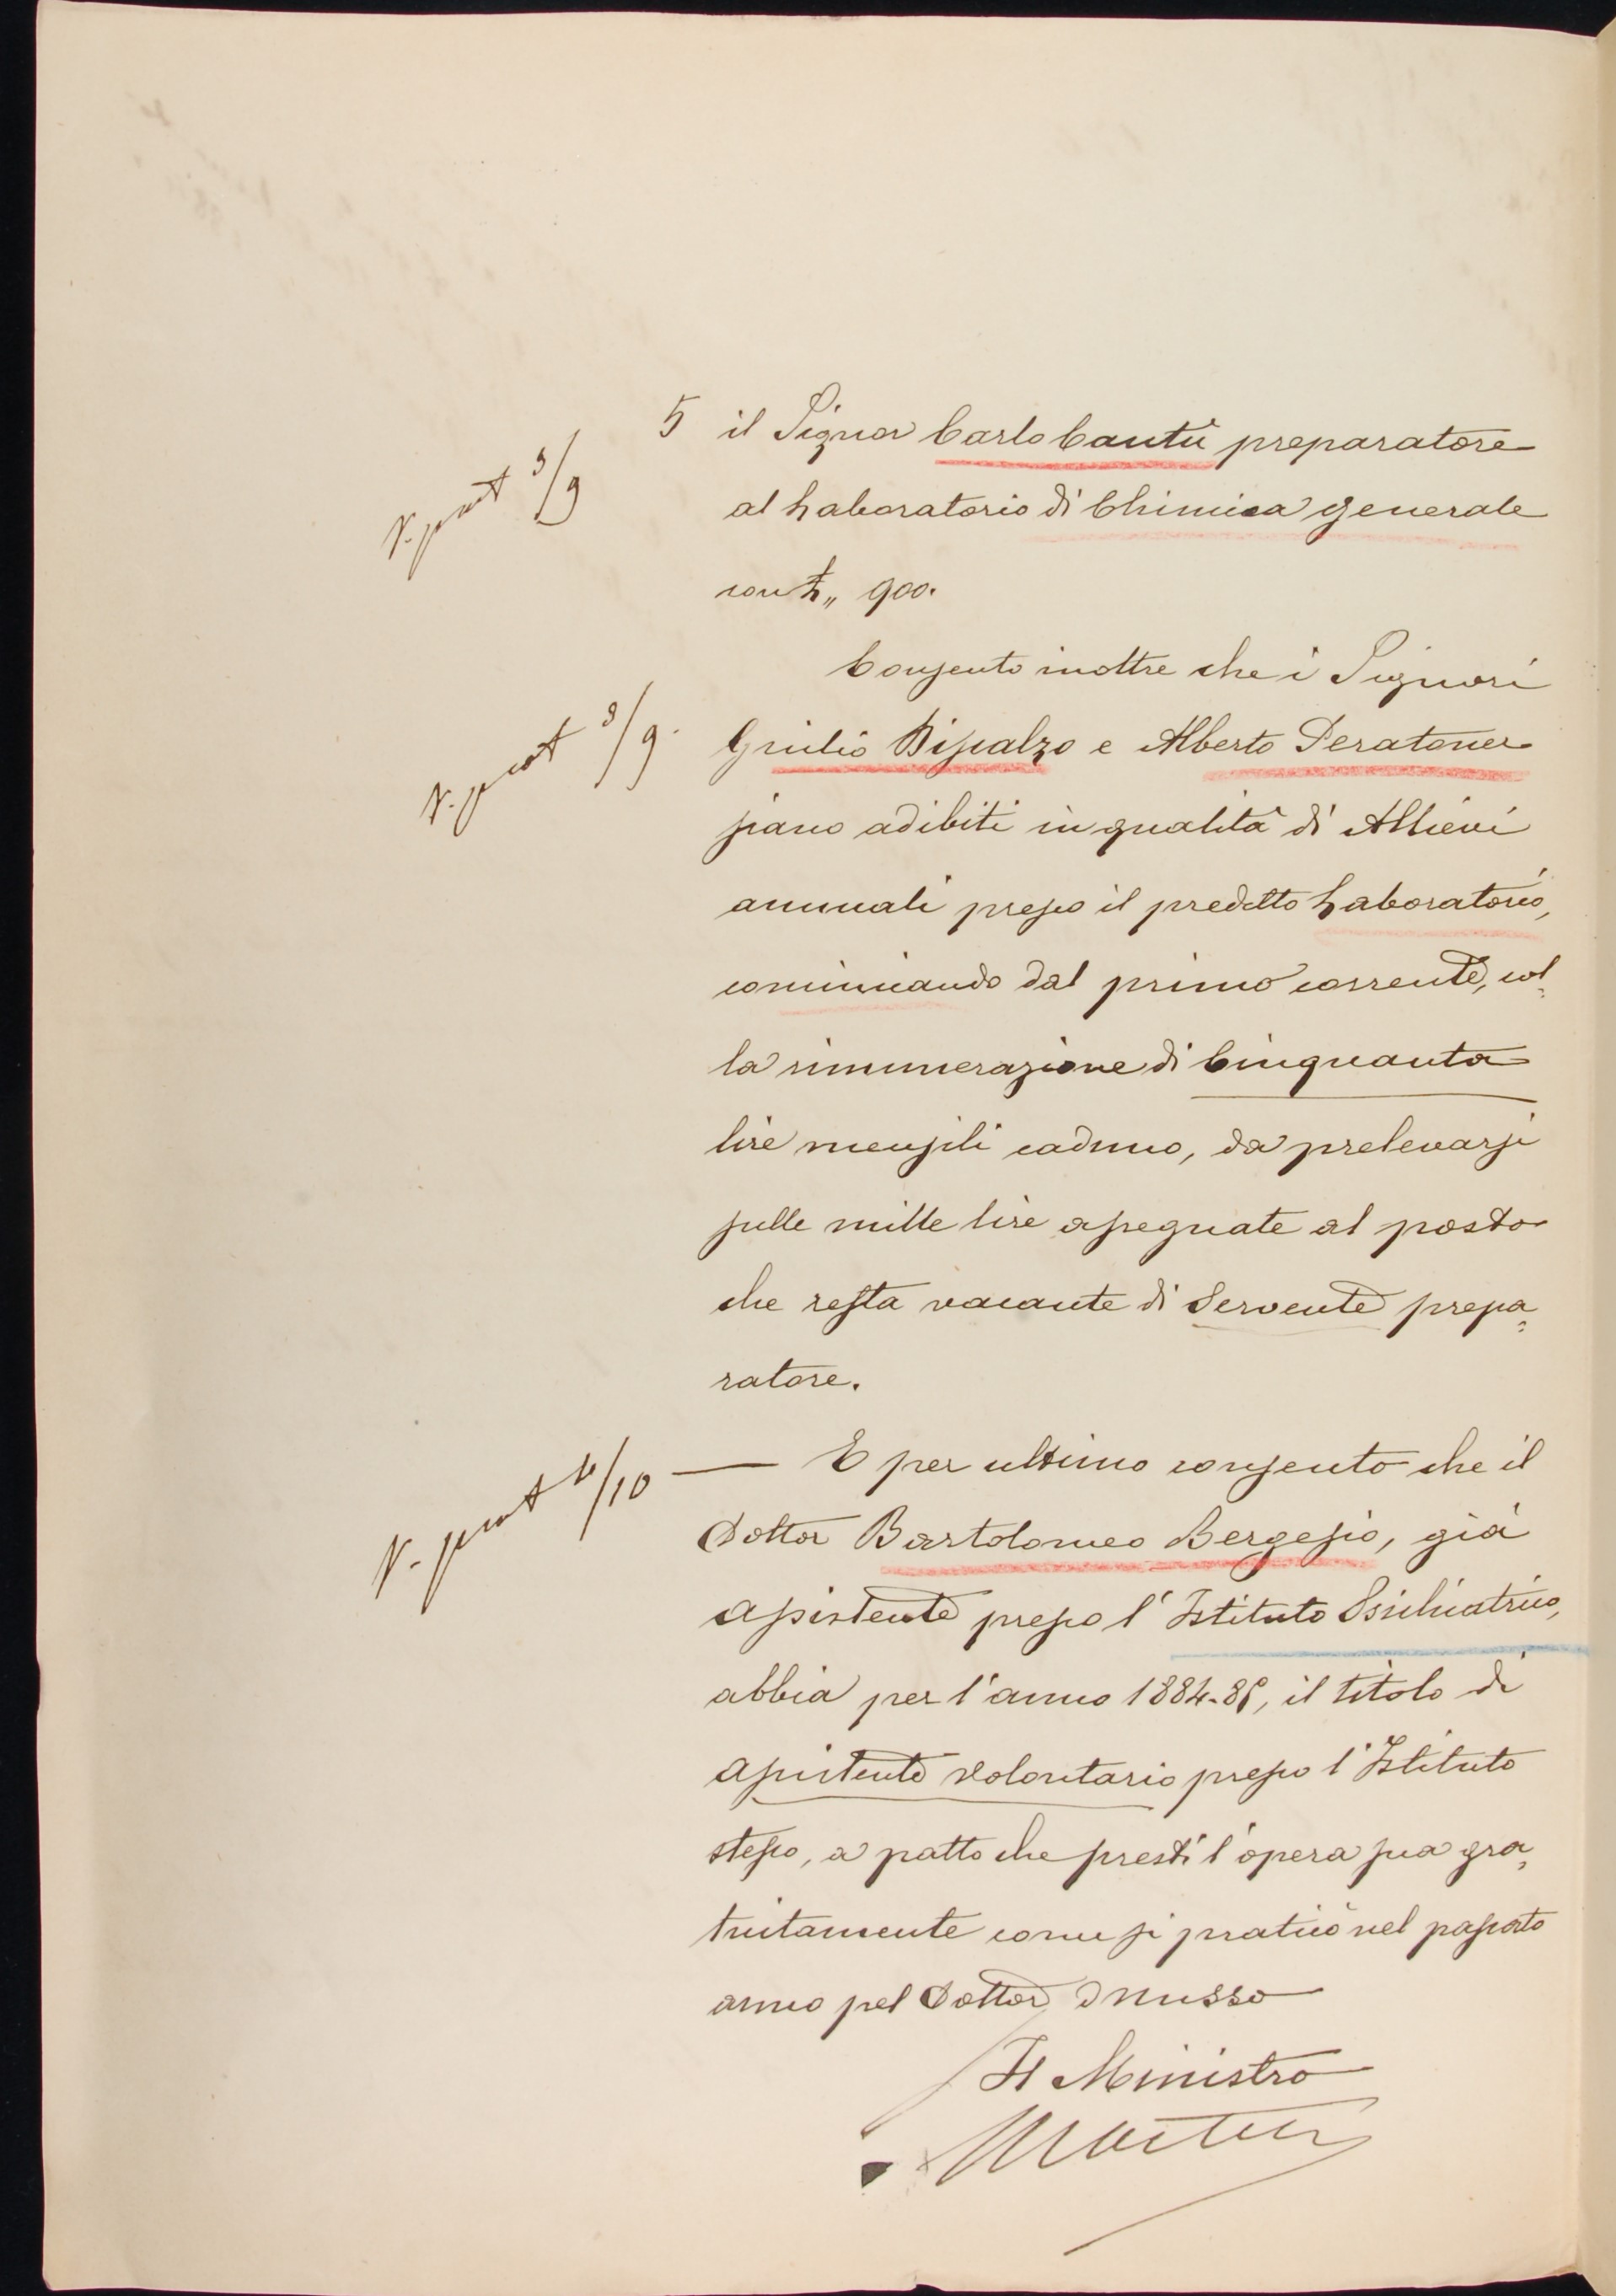 5 il Signor Carlo Cantù preparatore
al Laboratorio di Chimica generale
con L,, 900.
Consento inoltre che i Signori
Giulio Biscalzo e Alberto Peratoner
siano adibiti in qualità di Allievi
annuali presso il predetto Laboratorio,
cominciando dal primo corrente, col=
la rimunerazione di Cinquanta
lire mensili caduno, da prelevarsi
sulle mille lire assegnate al posto
che resta vacante di Servente prepa=
ratore.
— E per ultimo consento che il
Dottor Bartolomeo Bergesio, già
assistente presso l'Istituto Psichiatrico,
abbia per l'anno 1884-85, il titolo di
assistente volontario presso l'Istituto
stesso, a patto che presti l'opera sua gra=
tuitamente come si praticò nel passato
anno pel Dottor Musso
Il Ministro